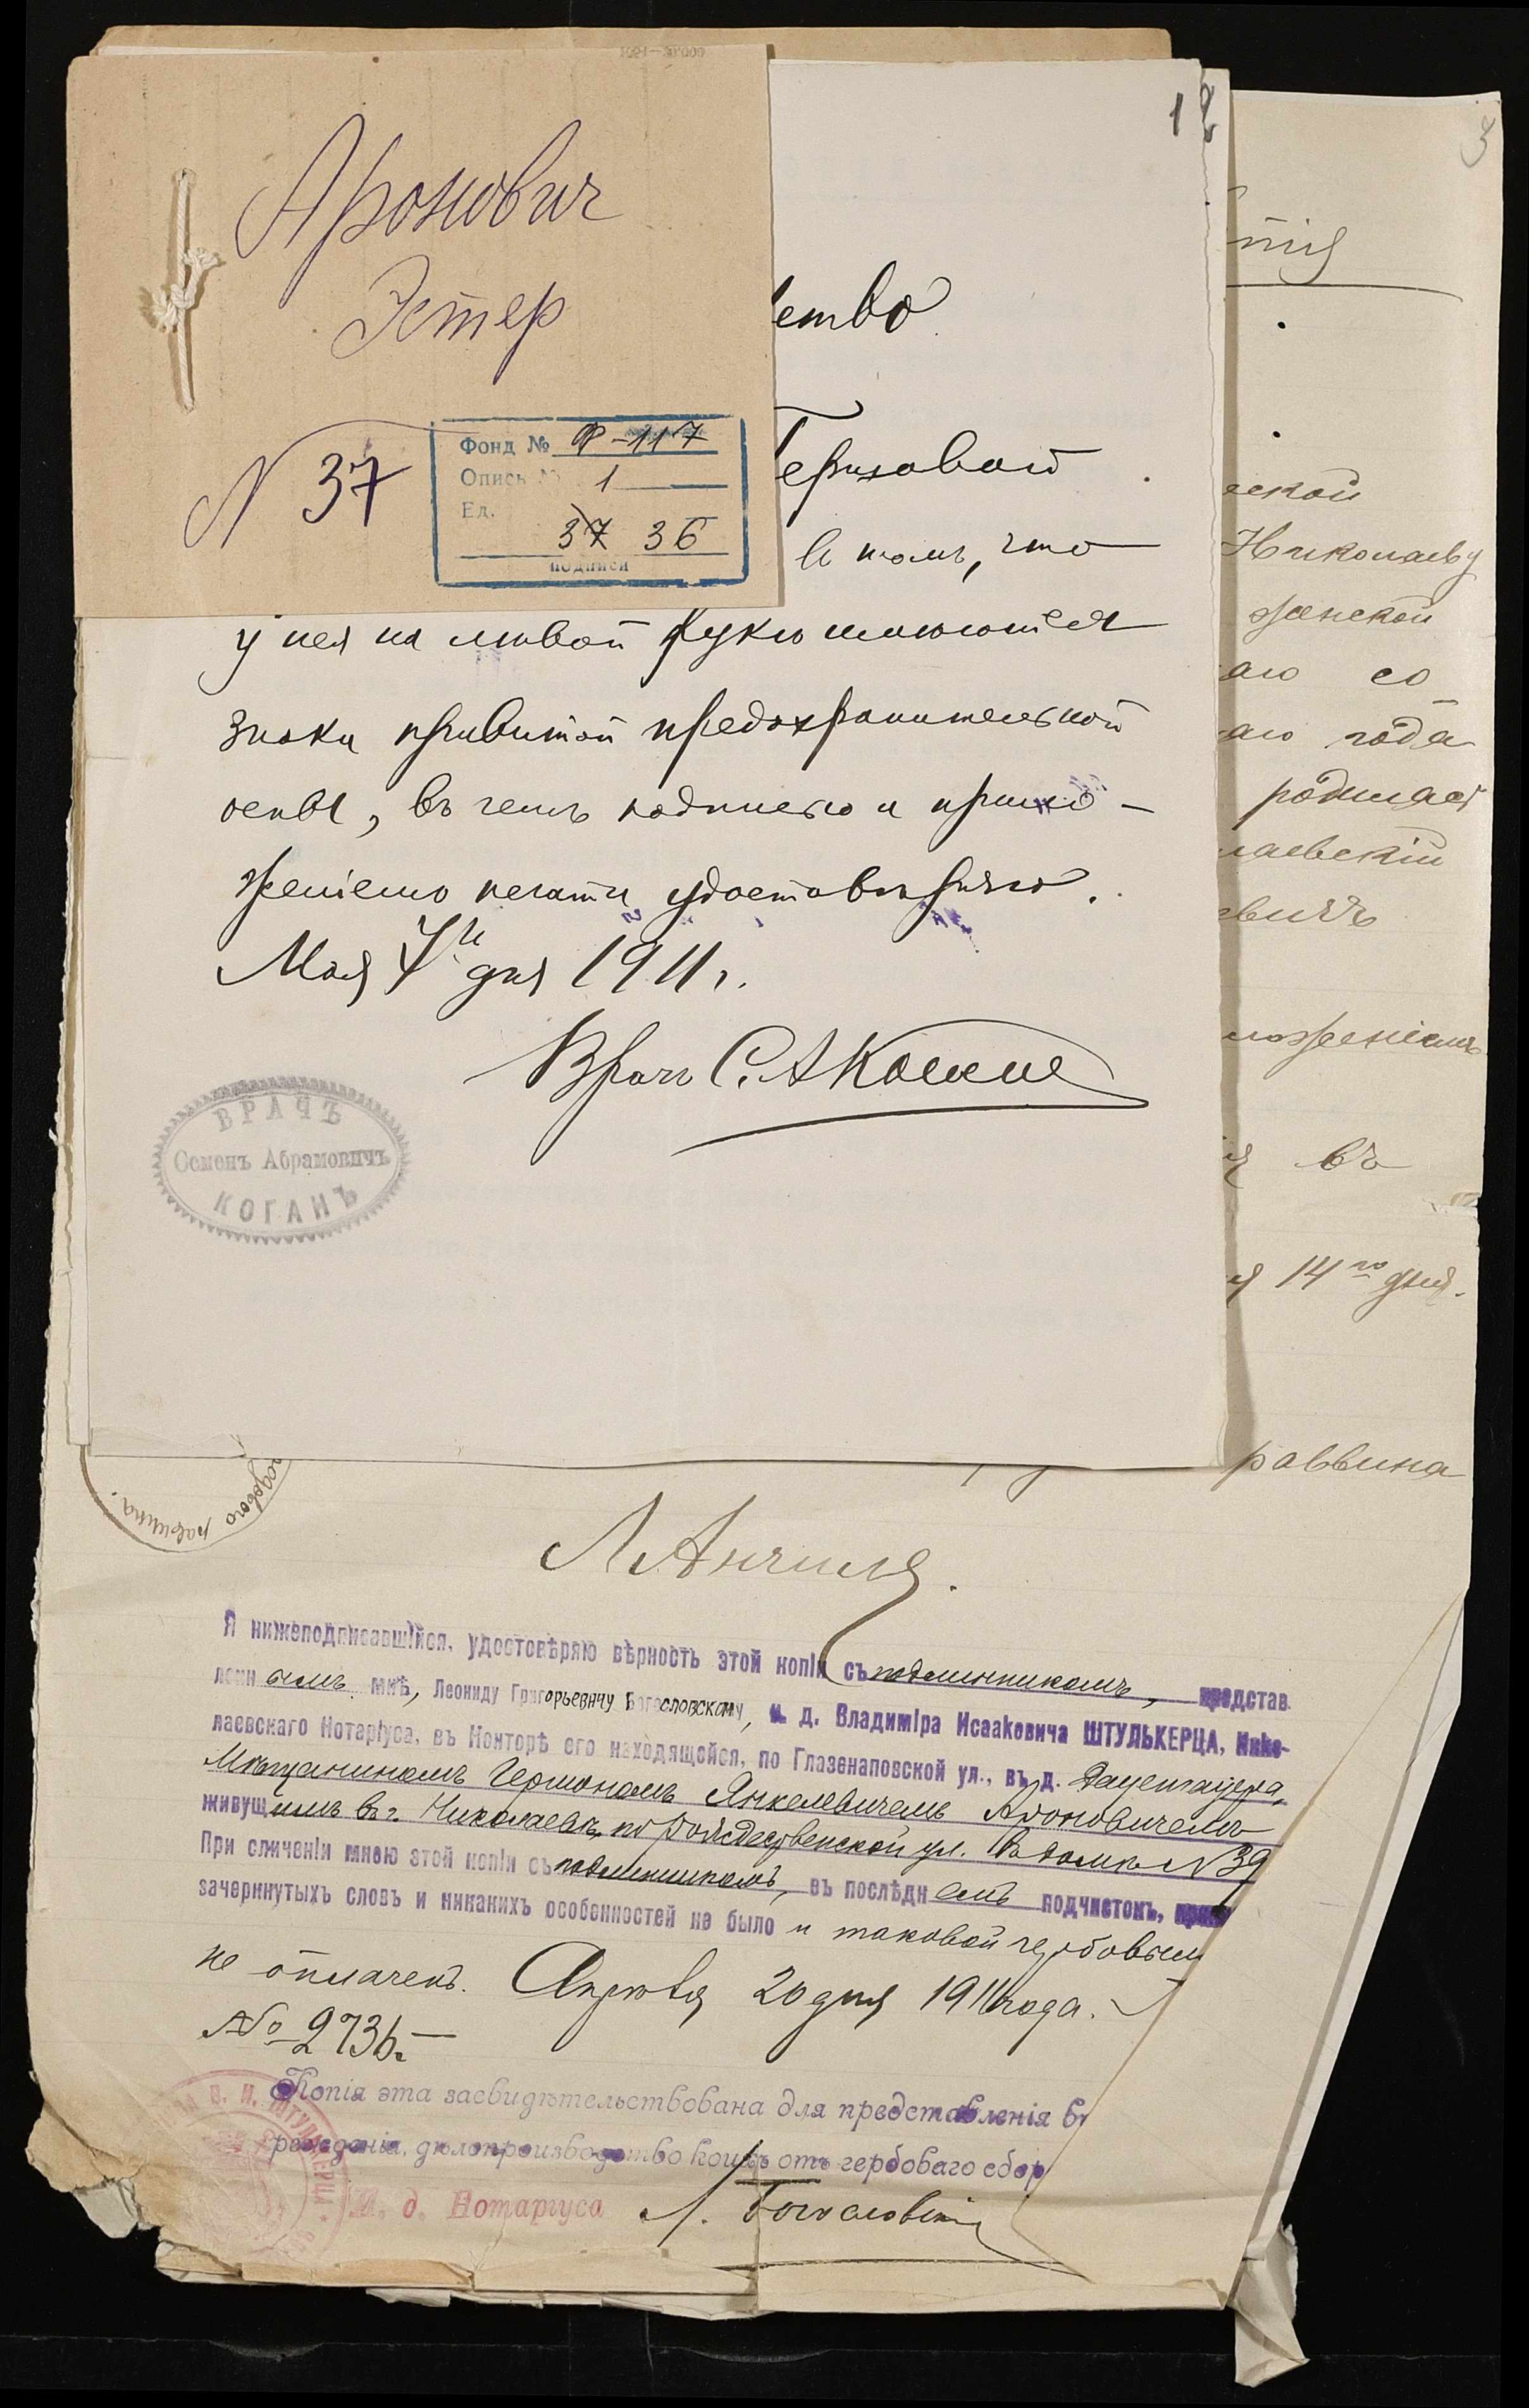 Аронович
Эстер
N 37
Фонд № Ф-117
Опись № 1
Ед. 37 36
подписи
12
ство
Гершовой
въ томъ, что
у нея на лѣвой рукѣ имѣются
знаки привитой предохранительной
оспы, въ чемъ подписью и прило-
женіемъ печати удостовѣряю.
Мая 7го дня 1911 г.
Врачъ С. А Коганъ
ВРАЧЪ
Семенъ Абрамовичъ
КОГАНЪ
3
тія
ской
Николаеву
женской
аго со
аго года
родилась
лаевскій
вичъ
ложеніемъ
я въ
я 14го дня.
раввина
городового раввина.
Я нижеподписавшійся, удостовѣряю вѣрность этой копіи съ подлинникомъ, представ
леннымъ мнѣ, Леониду Григорьевичу Богословскому, и. д. Владиміра Исааковича ШТУЛЬКЕРЦА, Нико-
лаевскаго Нотаріуса, въ Конторѣ его находящейся, по Глазенаповской ул., въ д.
Мѣщаниномъ Гершономъ Янкелевичемъ Ароновичемъ
живущимъ въ г. Николаевѣ, по Рождественской ул. въ домѣ N 39
При сличеніи мною этой копіи съ подлинникомъ, въ послѣднемъ подчистокъ, прип
зачеркнутыхъ словъ и никакихъ особенностей не было и таковой гербовымъ
не оплаченъ. Апрѣля 20 дня 1911 года.
№ 2736.
Копія эта засвидѣтельствована для представленія въ
дѣлопроизводство коихъ отъ гербоваго сбор
И. д. Нотаріуса Л. Богословскій